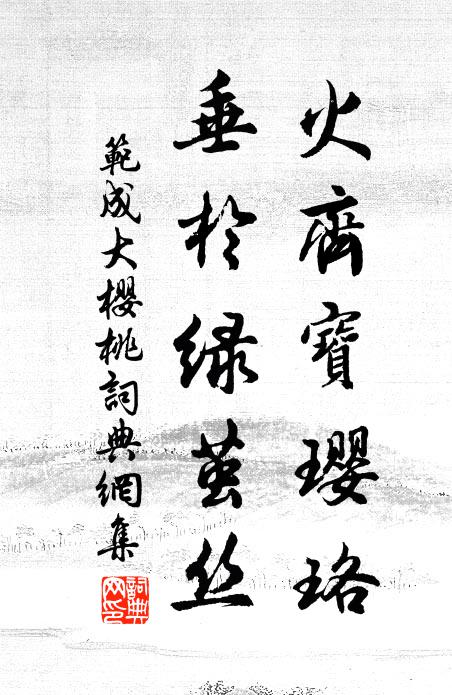 火齊寶瓔珞
垂於綠茧丝
範成大櫻桃詞典網集
詞典网印